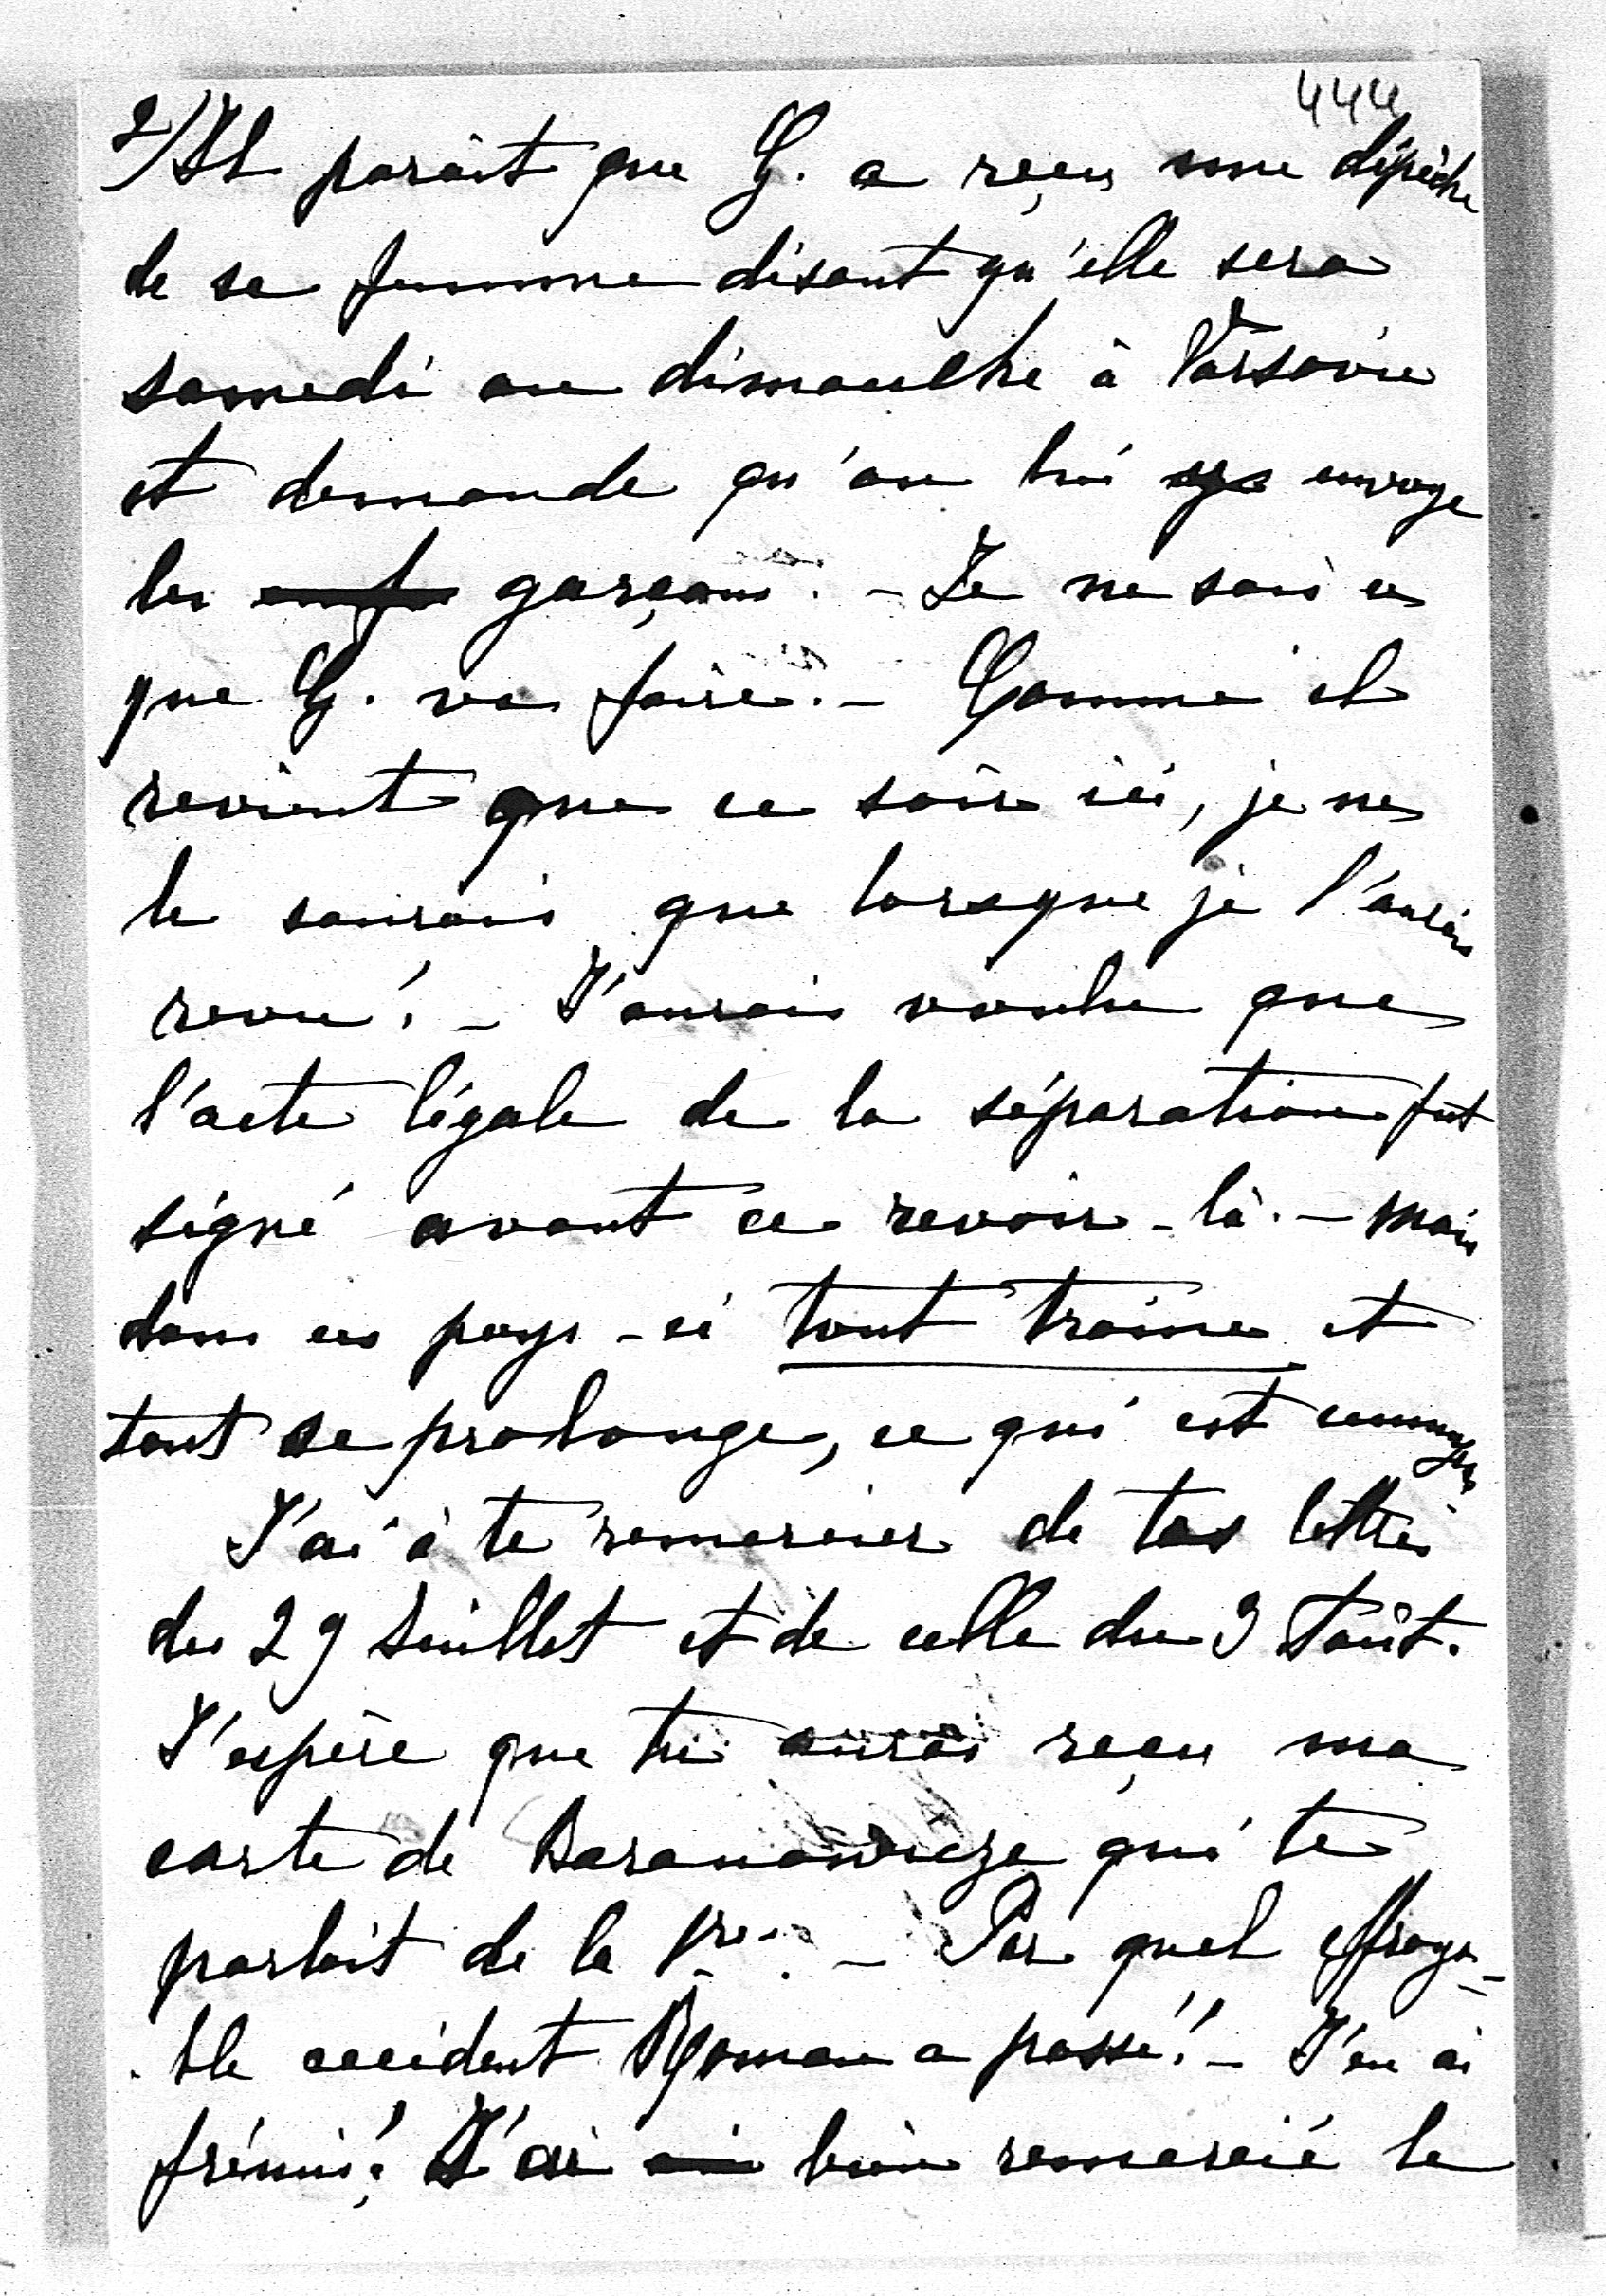 444
2/ Il parait que G. a reçu une dépêche
de sa femme disant qu'elle sera
samedi ou dimanche à Varsovie
et demande qu'on lui envoye
les garçons. - Je ne sais ce
que G. va faire. - Comme il
revient que ce soir ici, je ne
le saurais que lorsque je l'aurai
revu! - J'aurais voulu que
l'acte légale de la séparation fut
signé avant ce revoir-là. - Mais
dans ce pays-ci tout traine et
tout se prolonge, ce qui est
J'ai à te remercier de tes lettres
du 29 Juillet et de celle du 3 Août.
J'espère que tu auras reçu ma
carte de Baranowicze qui te
parlait de la 1re. - Par quel effroya-
ble accident Roman a passé! - J'en ai
frémi! J'ai bien remercié le